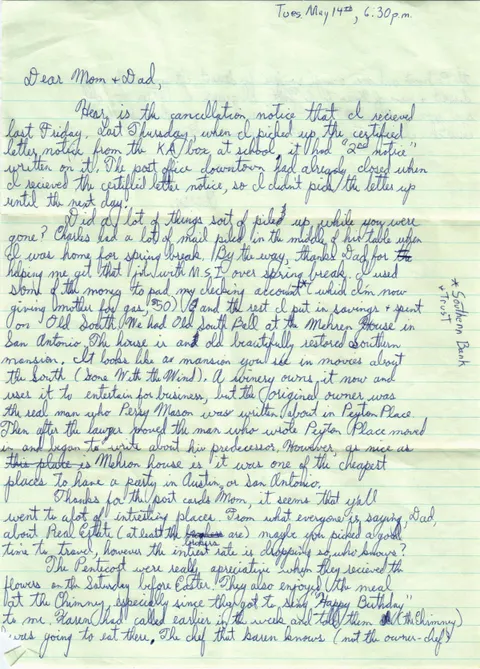 Tues. May 14th, 6:30 p.m.
Dear Mom + Dad,
Hear is the cancellation notice that I recieved
last Friday. Last Thursday, when I picked up the certified
letter notice from the KA box at school, it had "2nd notice"
written on it. The post office downtown had already closed when
I recieved the certified letter notice, so I didn't pick the letter up
until the next day.
Did a lot of things sort of piled up while you were
gone? Charles had a lot of mail piled in the middle of his table when
I was home for spring break. By the way, thanks Dad for
helping me get that job with N.S.I. over spring break. I used
some of the money to pad my checking account* (which I'm now
giving mother for gas, $50) and the rest I put in savings + spent
on Old South. We had Old South Ball at the Mehren House in
San Antonio. The house is an old beautifully restored Southern
mansion. It looks like a mansion you see in movies about
the South (Gone With the Wind). A winery owns it now and
uses it to entertain for business, but the original owner was
the real man who Perry Mason was written about in Peyton Place.
Then after the lawyer moved the man who wrote Peyton Place moved
in and began to write about his predecessor. However, as nice as
this place is Mehren house is it was one of the cheapest
places to have a party in Austin, or San Antonio.
Thanks for the post cards Mom, it seems that y'all
went to alot of intresting places. From what everyone is saying, Dad,
about Real Estate (at least the brokers are) maybe you picked a good
time to travel, however the intrest rate is dropping so who knows?
The Penticost were really apreciative when they recieved the
flowers on the Saturday before Easter. They also enjoyed the meal
at the Chimney, especially since they got to sing "Happy Birthday"
to me. Karen had called earlier in the week and told them (the Chimney)
I was going to eat there. The chef that Karen knows (not the owner-chef)
* Southern Bank
+ Trust